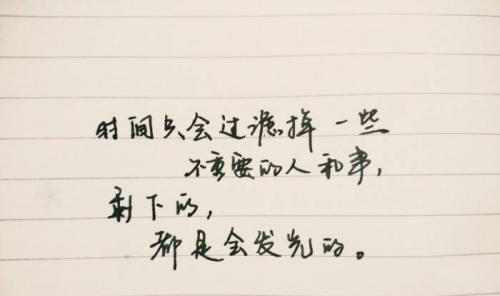 时间只会过滤掉一些
不重要的人和事，
剩下的，
都是会发光的。